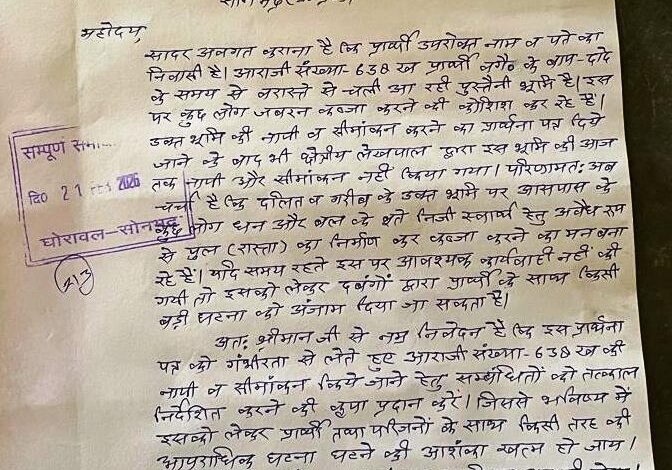 महोदय,
सादर अवगत कराना है कि प्रार्थी उपरोक्त नाम व पते का
निवासी है। आराजी संख्या-638 ख प्रार्थी वगै० के बाप-दादे
के समय से वरासते से चली आ रही पुस्तैनी भूमि है। इस
पर कुछ लोग जबरन कब्जा करने की कोशिश कर रहे हैं।
उक्त भूमि की नापी व सीमांकन करने का प्रार्थना पत्र दिये
जाने के बाद भी क्षेत्रीय लेखपाल द्वारा इस भूमि की आज
तक नापी और सीमांकन नहीं किया गया। परिणामत: अब
चर्चा है कि दलित व गरीब के उक्त भूमि पर आसपास के
कुछ लोग धन और बल के बूते निजी स्वार्थ हेतु अवैध रूप
से पुल (रास्ता) का निर्माण कर कब्जा करने का मन बना
रहे हैं। यदि समय रहते इस पर आवश्यक कार्यवाही नहीं की
गयी तो इसको लेकर दबंगों द्वारा प्रार्थी के साथ किसी
बड़ी घटना को अंजाम दिया जा सकता है।
अत: श्रीमान जी से नम्र निवेदन है कि इस प्रार्थना
पत्र को गंभीरता से लेते हुए आराजी संख्या-638 ख की
नापी व सीमांकन किये जाने हेतु सम्बंधितों को तत्काल
निर्देशित करने की कृपा प्रदान करें। जिससे भविष्य में
इसको लेकर प्रार्थी तथा परिजनों के साथ किसी तरह की
आपराधिक घटना घटने की आशंका खत्म हो जाय।
सम्पूर्ण
दि० 21 FEB 2026
घोरावल-सोनभद्र
213